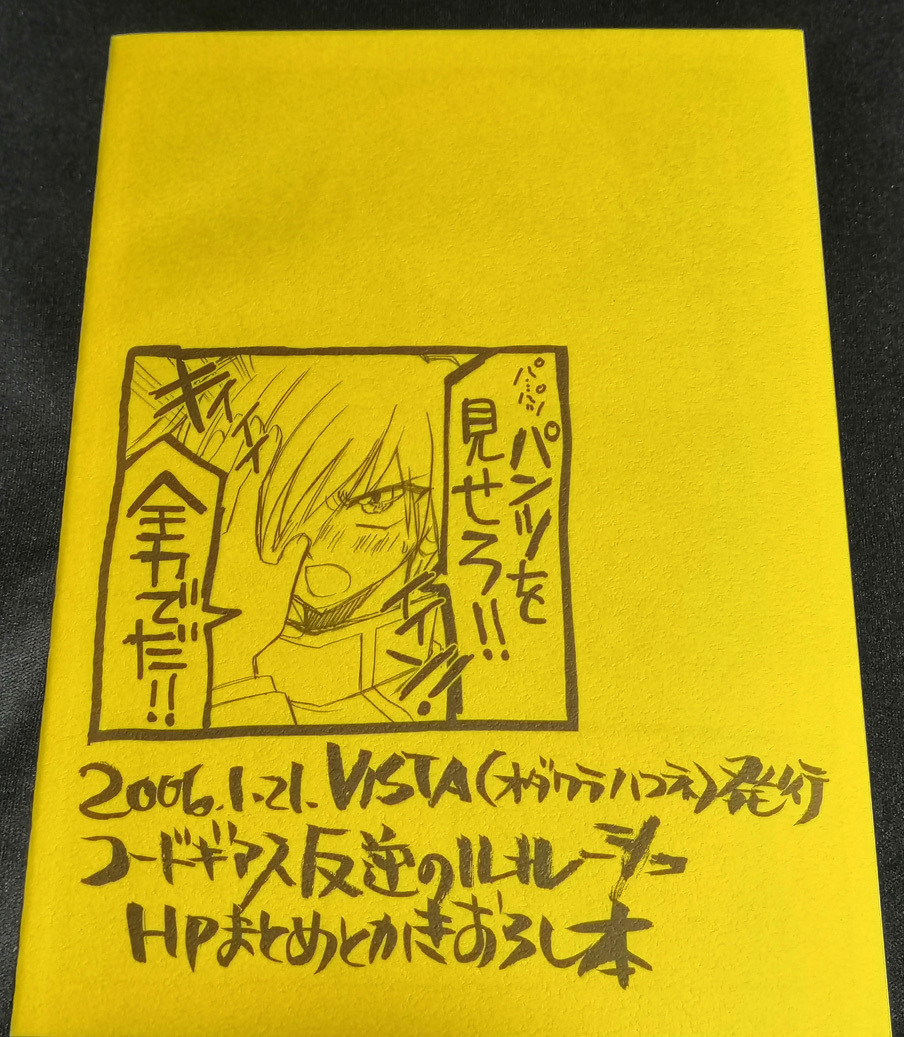 パ…パンツ
パンツを
見せろ!!
キィィィ
イイン!!
全力でだ!!
2006.1.21.VISTA(オガワラハコネ)発行
コードギアス反逆のルルーシュ
HPまとめとかきおろし本